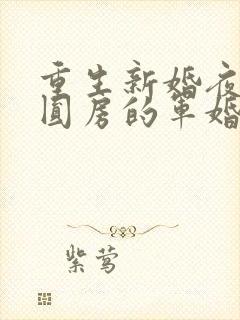 重生新婚夜
圆房的军婚
紫莺